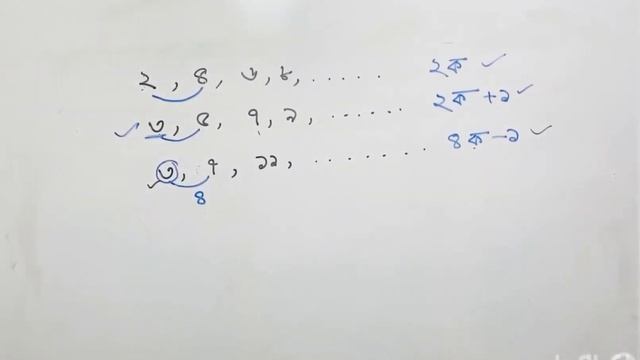 ২, ৪, ৬, ৮, ...... ২ক ✓
✓ ৩, ৫, ৭, ৯, ...... ২ক +১ ✓
✓ ৩, ৭, ১১, ........ ৪ক −১ ✓
৪